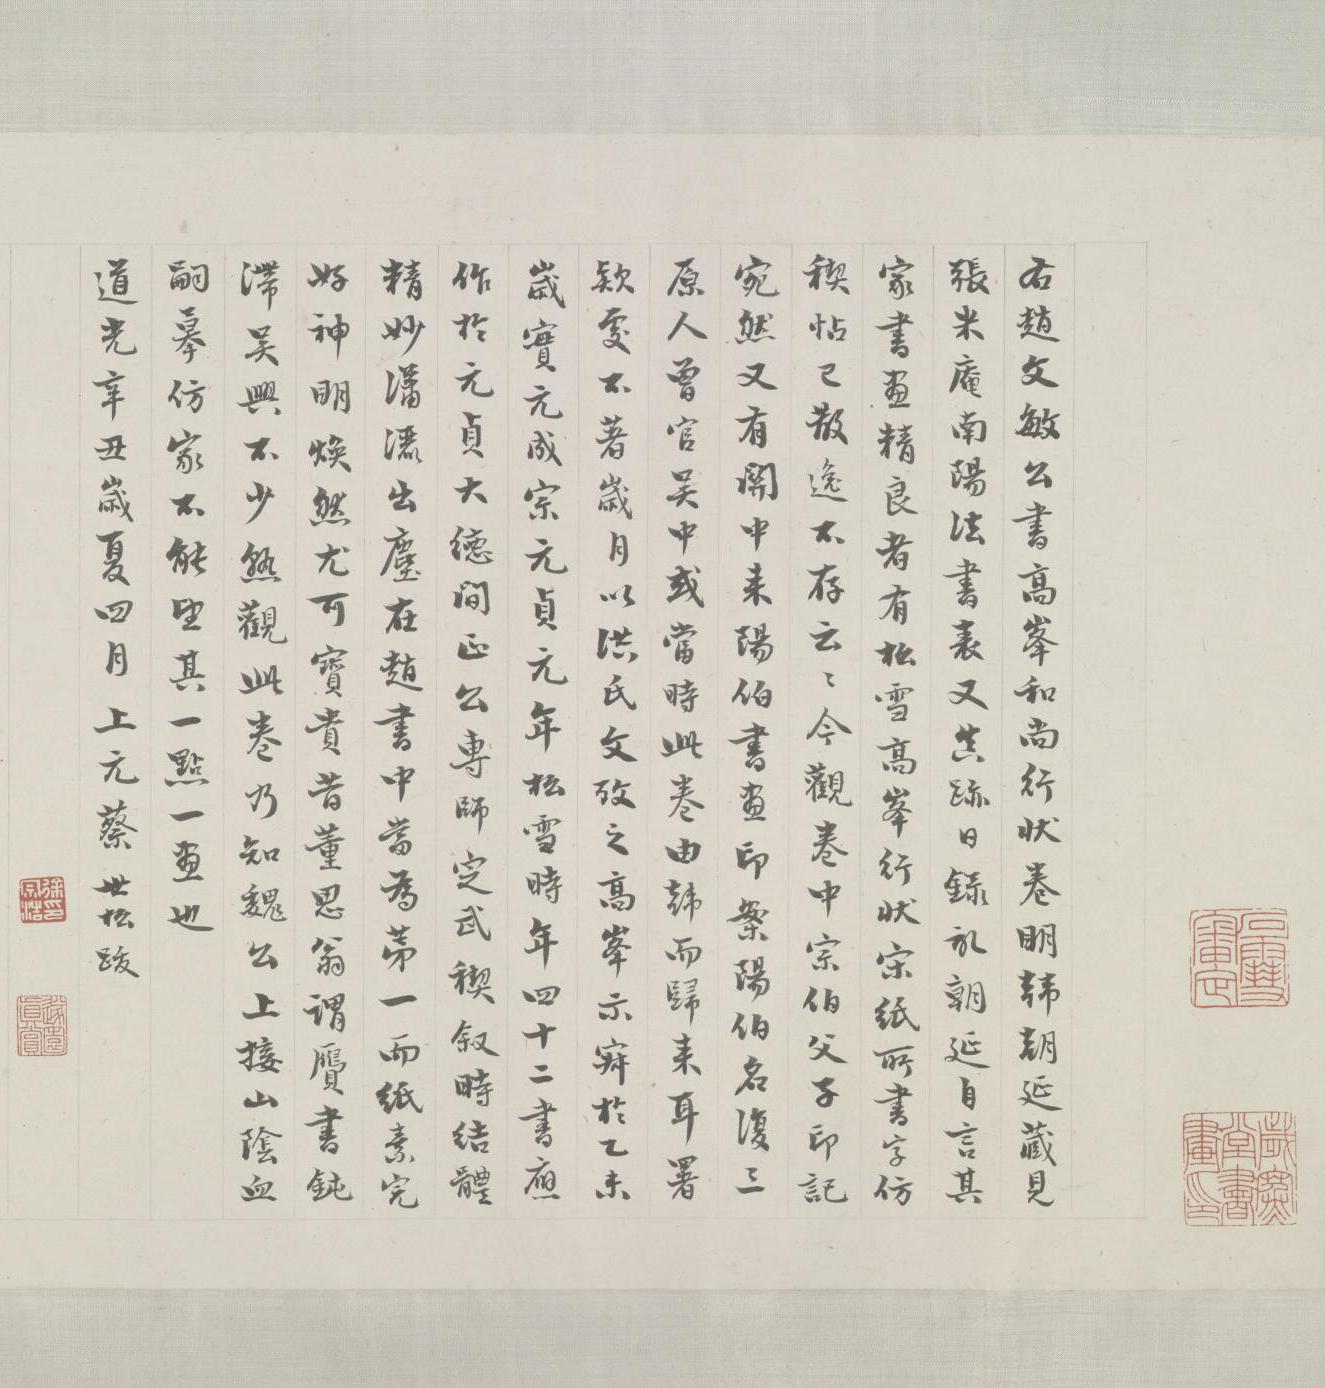 右趙文敏公書高峯和尚行狀卷明韓朝延藏見
張米庵南陽法書表又真跡日錄記朝延自言其
家書畫精良者有松雪高峯行狀宋紙所書字仿
稧帖已散逸不存云〻今觀卷中宗伯父子印記
宛然又有關中耒陽伯書畫印案陽伯名復三
原人曾官吴中或當時此卷由韓而歸耒耳署
欵處不著歲月以洪氏文攷之高峯示寂於乙未
歲實元成宗元貞元年松雪時年四十二書應
作於元貞大德間正公專師定武稧叙時結體
精妙瀟灑出塵在趙書中當為苐一而紙素完
好神明煥然尤可寶貴昔董思翁謂贋書鈍
滯吴興不少熟觀此卷乃知魏公上接山陰血
嗣摹仿家不能望其一點一畫也
道光辛丑歲夏四月上元蔡世松跋